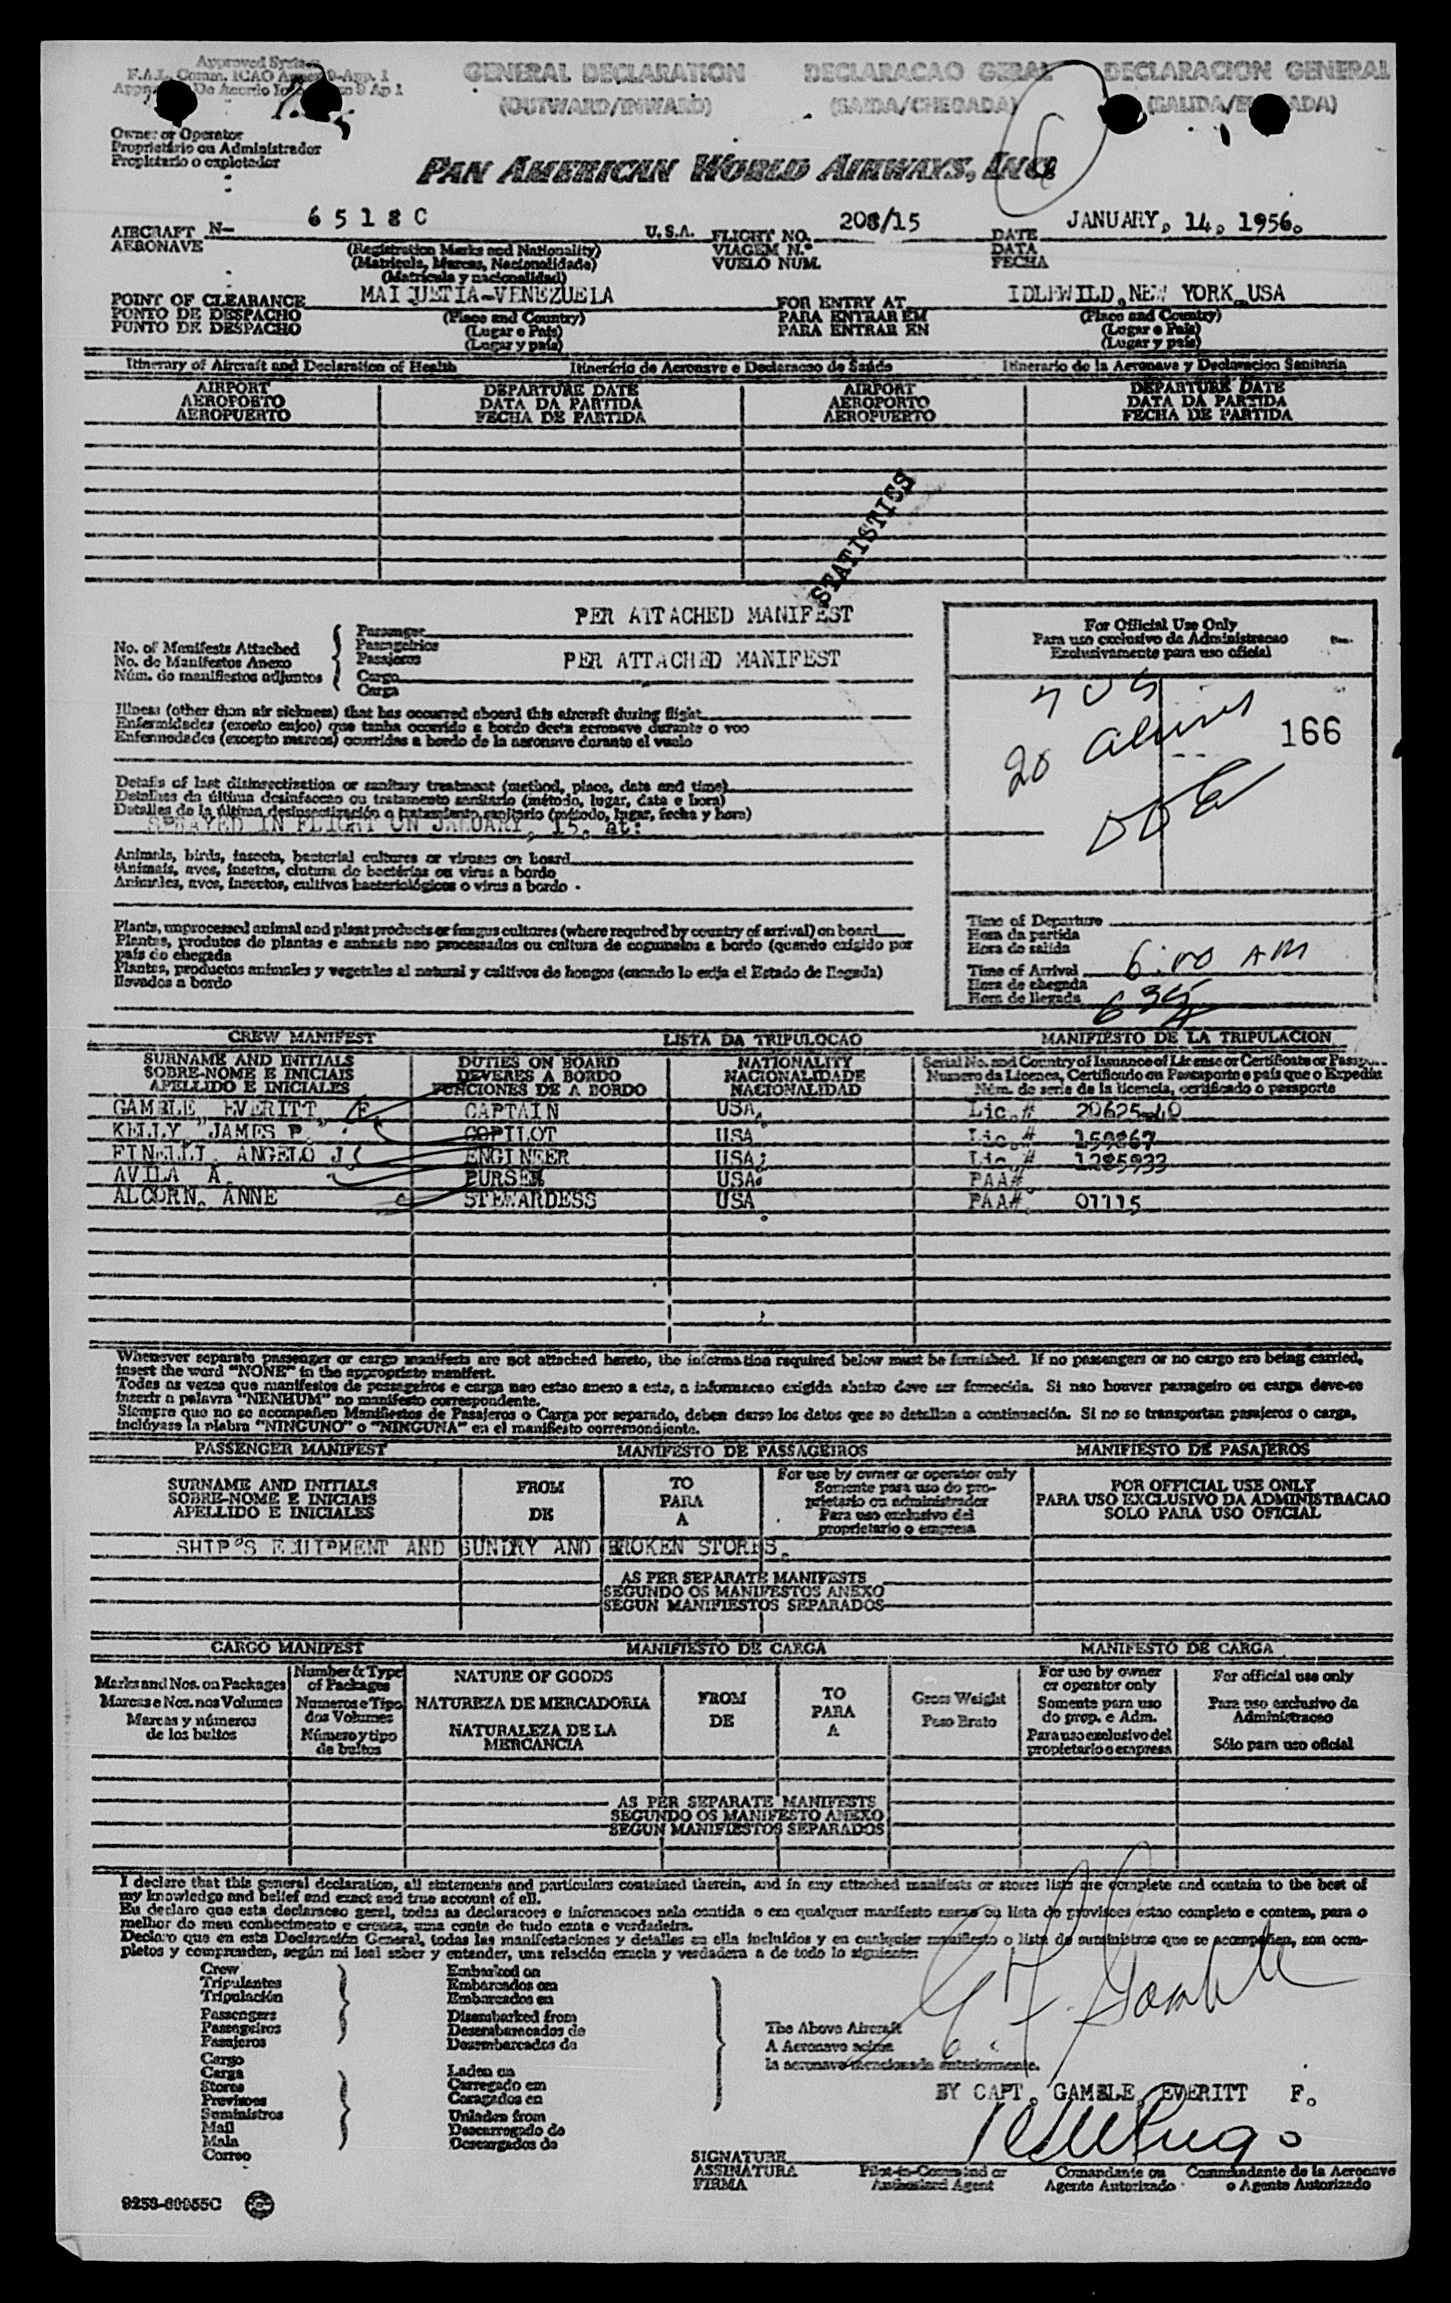 Approved System
F.A.L. Comm. ICAO Annex 9-App. 1
GENERAL DECLARATION DECLARACAO GERAL DECLARACION GENERAL
(OUTWARD/INWARD) (SAIDA/CHEGADA) (SALIDA/ENTRADA)
Owner or Operator
Proprietário ou Administrador
Propietario o explotador
PAN AMERICAN WORLD AIRWAYS, INC.
6
AIRCRAFT N- 6518C U.S.A. FLIGHT NO. 208/15 DATE JANUARY, 14, 1956.
AERONAVE (Registration Marks and Nationality) VIAGEM N.° DATA
(Matricula, Marcas, Nacionalidade) VUELO NUM. FECHA
(Matricula y nacionalidad)
POINT OF CLEARANCE MAIQUETIA-VENEZUELA FOR ENTRY AT IDLEWILD, NEW YORK, USA
PONTO DE DESPACHO (Place and Country) PARA ENTRAR EM (Place and Country)
PUNTO DE DESPACHO (Lugar e País) PARA ENTRAR EN (Lugar e País)
(Lugar y país) (Lugar y país)
Itinerary of Aircraft and Declaration of Health Itinerário de Aeronave e Declaracao de Saúde Itinerario de la Aeronave y Declaracion Sanitaria
AIRPORT DEPARTURE DATE AIRPORT DEPARTURE DATE
AEROPORTO DATA DA PARTIDA AEROPORTO DATA DA PARTIDA
AEROPUERTO FECHA DE PARTIDA AEROPUERTO FECHA DE PARTIDA
STATISTICS
PER ATTACHED MANIFEST
Passenger
No. of Manifests Attached Passageirios
No. de Manifestos Anexo Pasajeros PER ATTACHED MANIFEST
Núm. de manifiestos adjuntos Cargo
Carga
For Official Use Only
Para uso exclusivo da Administracao
Exclusivamente para uso oficial
7 US
20 aliens
166
Illness (other than air sickness) that has occurred aboard this aircraft during flight
Enfermidades (exceto enjoo) que tenha ocorrido a bordo desta aeronave durante o voo
Enfermedades (excepto mareos) ocurridas a bordo de la aeronave durante el vuelo
Details of last disinsectization or sanitary treatment (method, place, date and time)
Detalhes da última desinfeccao ou tratamento sanitário (método, lugar, data e hora)
Detalles de la última desinsectización o tratamiento sanitario (método, lugar, fecha y hora)
SPRAYED IN FLIGHT ON JANUARY, 15, at:
Animals, birds, insects, bacterial cultures or viruses on board
Animais, aves, insetos, clutura de bectérias ou virus a bordo
Animales, aves, insectos, cultivos bacteriológicos o virus a bordo
Plants, unprocessed animal and plant products or fungus cultures (where required by country of arrival) on board
Plantas, produtos de plantas e animais nao processados ou cultura de cogumelos a bordo (quando exigido por
país de chegada
Plantas, productos animales y vegetales al natural y cultivos de hongos (cuando lo exija el Estado de llegada)
llevados a bordo
Time of Departure
Hora da partida
Hora de salida
Time of Arrival 6:00 AM
Hora de chegada
Hora de llegada 635
CREW MANIFEST LISTA DA TRIPULOCAO MANIFIESTO DE LA TRIPULACION
SURNAME AND INITIALS DUTIES ON BOARD NATIONALITY Serial No. and Country of Issuance of License or Certificate or Passport
SOBRE-NOME E INICIAIS DEVERES A BORDO NACIONALIDADE Numero da Licenca, Certificado ou Passaporte e país que o Expediu
APELLIDO E INICIALES FUNCIONES DE A BORDO NACIONALIDAD Núm. de serie de la licencia, certificado o pasaporte
GAMBLE, EVERITT F. CAPTAIN USA. Lic.# 20625-40
KELLY, JAMES P. COPILOT USA. Lic.# 159867
FINELLI, ANGELO J. ENGINEER USA. Lic.# 1285933
AVILA A. PURSER USA. PAA#
ALCORN, ANNE STEWARDESS USA. PAA#. 01115
Whenever separate passenger or cargo manifests are not attached hereto, the information required below must be furnished. If no passengers or no cargo are being carried,
insert the word "NONE" in the appropriate manifest.
Todas as vezes que manifestos de passageiros e carga nao estao anexo a este, a informacao exigida abaixo deve ser fornecida. Si nao houver passageiro ou carga deve-se
inserir a palavra "NENHUM" no manifesto correspondente.
Siempre que no se acompañen Manifiestos de Pasajeros o Carga por separado, deben darse los datos que se detallan a continuación. Si no se transportan pasajeros o carga,
inclúyase la plabra "NINGUNO" o "NINGUNA" en el manifiesto correspondiente.
PASSENGER MANIFEST MANIFESTO DE PASSAGEIROS MANIFIESTO DE PASAJEROS
SURNAME AND INITIALS FROM TO For use by owner or operator only FOR OFFICIAL USE ONLY
SOBRE-NOME E INICIAIS PARA Somente para uso do pro- PARA USO EXCLUSIVO DA ADMINISTRACAO
APELLIDO E INICIALES DE A prietario ou administrador SOLO PARA USO OFICIAL
Para uso exclusivo del
proprietario o empresa
SHIP'S EQUIPMENT AND SUNDRY AND BROKEN STORES.
AS PER SEPARATE MANIFESTS
SEGUNDO OS MANIFESTOS ANEXO
SEGUN MANIFIESTOS SEPARADOS
CARGO MANIFEST MANIFIESTO DE CARGA MANIFESTO DE CARGA
Marks and Nos. on Packages Number & Type of Packages NATURE OF GOODS FROM TO Gross Weight For use by owner or operator only For official use only
Marcas e Nos. nos Volumes Numeros e Tipo dos Volumes NATUREZA DE MERCADORIA DE PARA Peso Bruto Somente para uso do prop. e Adm. Para uso exclusivo da Administracao
Marcas y números de los bultos Número y tipo de bultos NATURALEZA DE LA MERCANCIA A Para uso exclusivo del propietario o empresa Sólo para uso oficial
AS PER SEPARATE MANIFESTS
SEGUNDO OS MANIFESTO ANEXO
SEGUN MANIFIESTOS SEPARADOS
I declare that this general declaration, all statements and particulars contained therein, and in any attached manifests or stores lists are complete and contain to the best of
my knowledge and belief and exact and true account of all.
Eu declaro que esta declaracao geral, todas as declaracors e informacoes nela contida o em qualquer manifesto anexo ou lista de provisoes estao completo e contem, para o
melhor do meu conhecimento e crenca, uma conta de tudo exata e verdadeira.
Declaro que en esta Declaración General, todas las manifestaciones y detalles en ella incluidos y en cualquier manifiesto o lista de suministros que se acompañen, son com-
pletos y comprenden, según mi leal saber y entender, una relación exacta y verdadera a de todo lo siguiente:
Crew Embarked on
Tripulantes Embarcados em
Tripulación Embarcados en
Passengers Disembarked from
Passageiros Desembarcados de
Pasajeros Desembarcados de
Cargo
Carga Laden on
Stores Carregado em
Provisoes Caragados en
Suministros Unladen from
Mail Descarregado de
Mala Descargados de
Correo
The Above Aircraft
A Aeronave acima
la aeronave mencionada anteriormente.
E. F. Gamble
BY CAPT. GAMBLE, EVERITT F.
SIGNATURE
ASSINATURA Pilot-in-Command or Comandante ou Commandante de la Aeronave
FIRMA Authorized Agent Agente Autorizado o Agente Autorizado